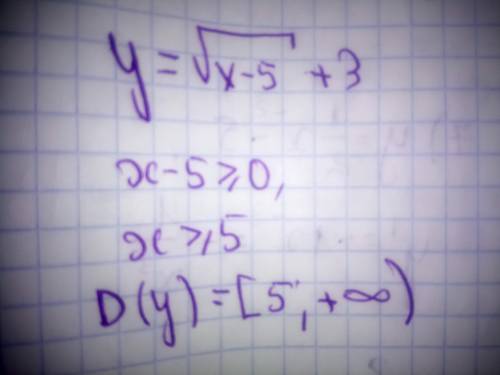 y = √x-5 + 3
x-5 ⩾ 0,
x ⩾ 5
D(y) = [5, +∞)